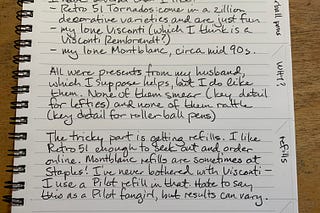 - Retro 51 Tornados come in a zillion
decorative varieties and are just fun
- my lone Visconti (which I think is a
Visconti Rembrandt?)
- my lone Montblanc, circa mid 90s.
All were presents from my husband,
which I suppose helps, but I do like
them. None of them smear (key detail
for lefties) and none of them rattle
(key detail for roller-ball pens)
The tricky part is getting refills. I like
Retro 51 enough to seek out and order
online. Montblanc refills are sometimes at
Staples! I've never bothered with Visconti -
I use a Pilot refill in that. Hate to say
this as a Pilot fangirl, but results can vary.
pens
WHY?
refills